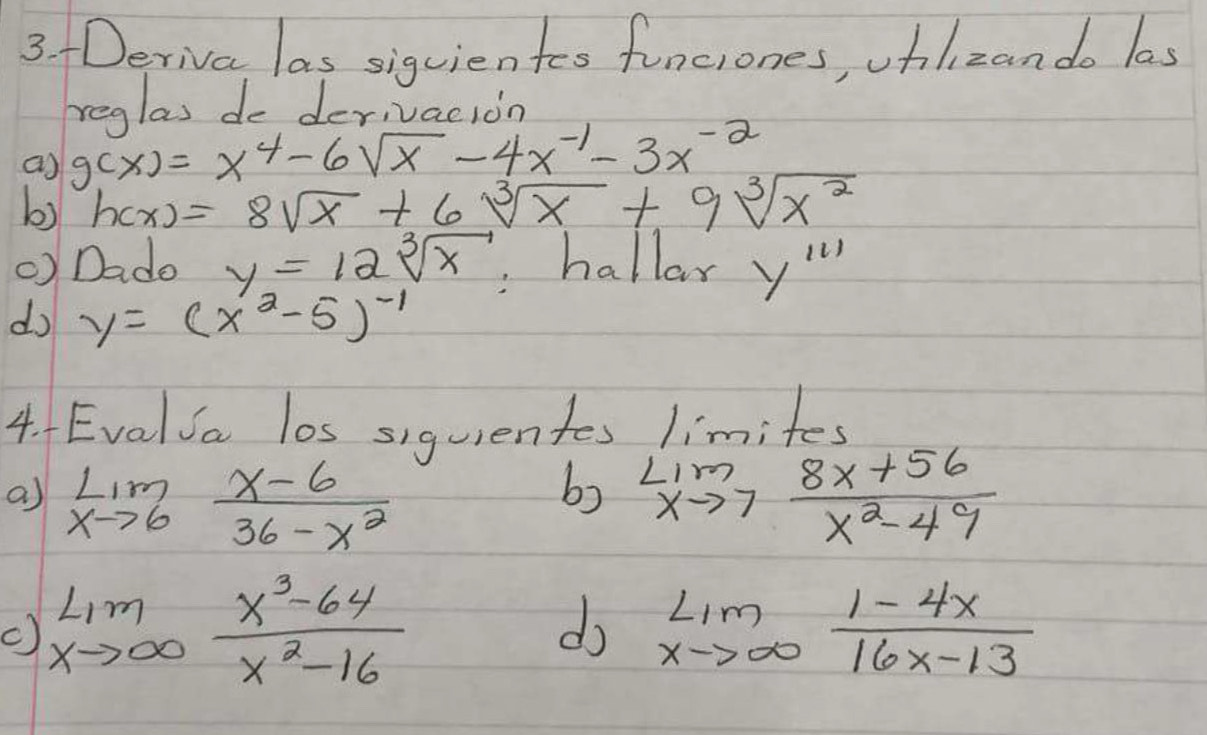 3.- Deriva las siguientes funciones, utilizando las
reglas de derivación
a) g(x) = x⁴ - 6√x - 4x⁻¹ - 3x⁻²
b) h(x) = 8√x + 6∛x + 9∛x²
c) Dado y = 12∛x; hallar y'''
d) y = (x² - 5)⁻¹
4.- Evalúa los siguientes límites
a) Lim x→6 (x-6)/(36-x²) b) Lim x→7 (8x+56)/(x²-49)
c) Lim x→∞ (x³-64)/(x²-16) d) Lim x→∞ (1-4x)/(16x-13)